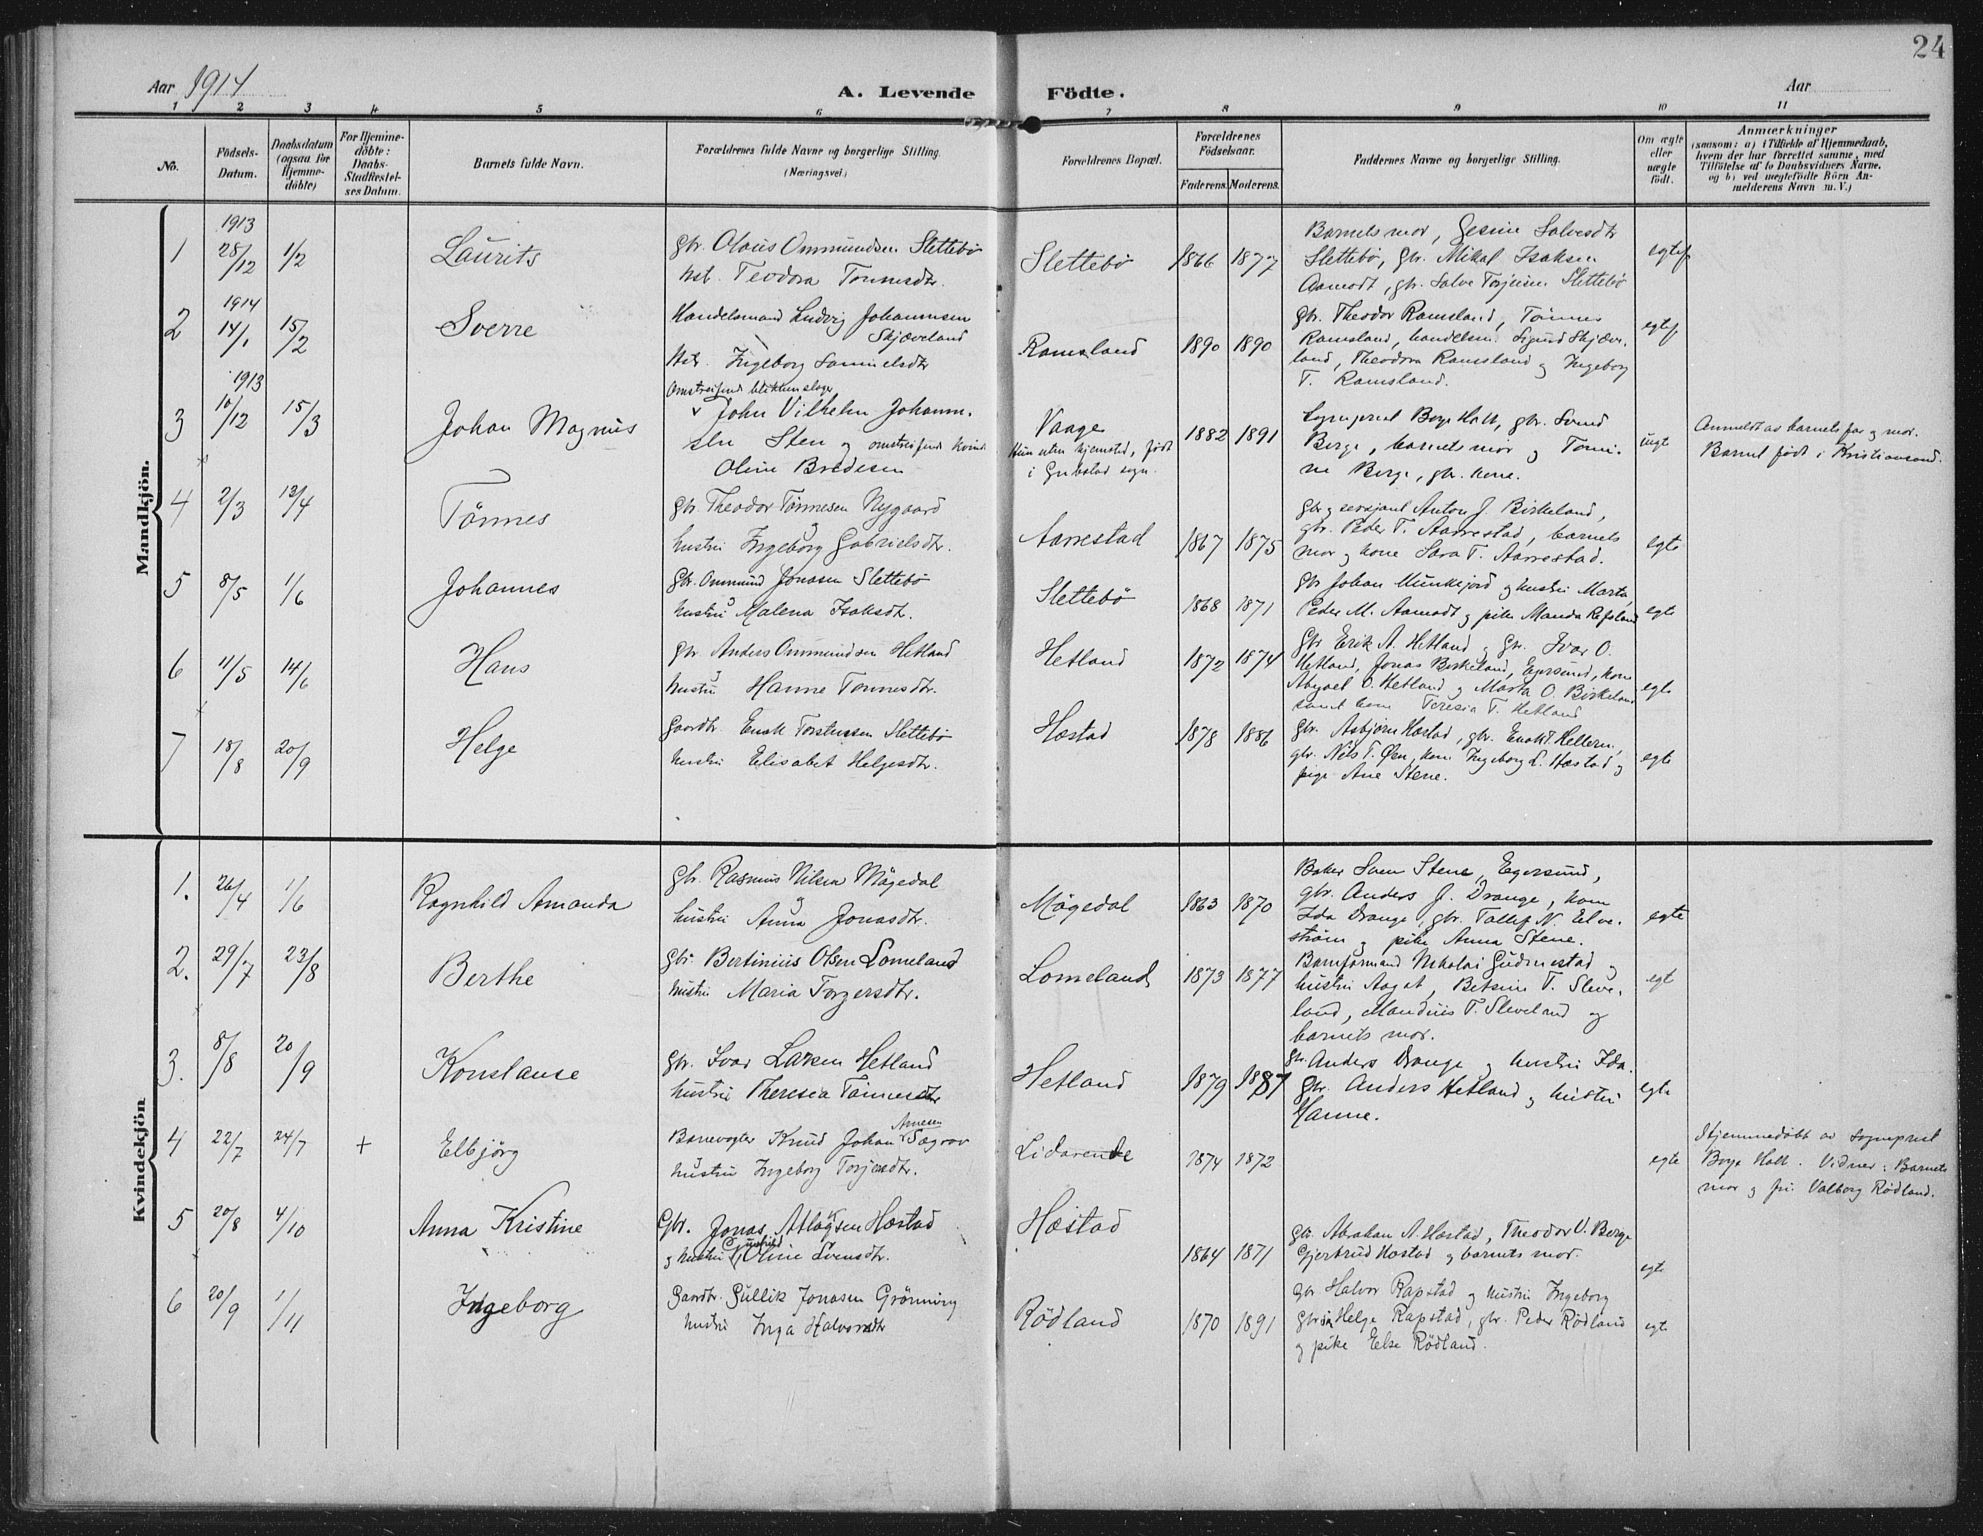 24
Aar 1914
A. Levende Födte.
Aar
1 2 3 4 5 6 7 8 9 10 11
No.
Födsels-
Datum.
Daabsdatum
(ogsaa for
Hjemme-
döbte)
For Hjemme-
döbte:
Daabs-
Stadfæstel-
ses Datum.
Barnets fulde Navn.
Forældrenes fulde Navne og borgerlige Stilling.
(Næringsvei)
Forældrenes Bopæl.
Forældrenes
Födselsaar.
Faderens. Moderens.
Faddernes Navne og borgerlige Stilling.
Om ægte
eller
uægte
födt.
Anmærkninger
(saasom: a) i Tilfælde af Hjemmedaab,
hvem der har forrettet samme, med
Tilföielse af to Daabsvidners Navne.
og b) ved uægtefödte Börn An-
melderens Navn m. V.)
Mandkjön.
1
1913
28/12
1/2
Laurits
Gbr. Olaus Ommundsen Slettebö
Hst. Teodora Tönnesdtr.
Slettebö
1866 1877
Barnets mor, Gesine Salvesdtr
Slettebö, gbr. Mikal Isaksen
Aamodt, gbr. Salve Torjusen Slettebö
2
1914
14/1
15/2
Sverre
Handelsmand Ludvig Johannesen
Skjæveland
Hst. Ingeborg Samuelsdtr
Ramsland
1890 1890
Gbr. Theodor Ramsland, Tönnes
Ramsland, handelsm. Sigurd Skjæve-
land, Theodora Ramsland og Ingeborg
T. Ramsland.
3
1913
10/12
15/3
Johan Magnus
Omstreifende blikkenslager
John Vilhelm Johann-
sen Sten og omstreifende kvinde
Oline Bredesen
Vaage
Hun uten hjemsted, födt
i sogn.
1882 1891
Sogneprest Boye Holt, gbr. Svend
Berge, barnets mor og Tomi-
ne Berge, gbr. kone.
uegt
Anmeldt av barnets far og mor.
Barnet födt i Kristiansand.
4
2/3
13/4
Tönnes
Gbr. Theodor Tönnesen Nygaard
og
hustru Ingeborg Gabrielsdtr.
Aarrestad
1867 1875
Gbr og sersjant Anton J. Birkeland,
gbr. Peder T. Aarrestad, barnets
mor og kone Sara T. Aarrestad.
egte
5
8/5
1/6
Johannes
Gbr. Ommund Jonasen Slettebö
og
hustru Malena Isaksdtr.
Slettebö
1868 1871
Gbr Johan Munkejord og hustru Marta,
Peder M. Aamodt og pike Manda Refsland
egte
6
11/5
14/6
Hans
Gbr. Anders Ommundsen Hetland
og
hustru Hanne Tönnesdtr.
Hetland
1872 1874
Gbr Erik A. Hetland, Gbr. Ivar O.
Hetland, Jonas Birkeland, Egersund, kone
Abigael O. Hetland og Marta O. Birkeland
samt kone Teresia T. Hetland
egte
7
18/8
20/9
Helge
Gaardbr. Enok Torstensen Slettebö
hustru Elisabet Helgesdtr.
Hæstad
1878 1886
Gbr. Asbjörn Hæstad, gbr. Enok T. Helleren,
gbr. Nils T. Øen, kone Ingeborg L. Hæstad og
pige Ane Stene.
egte
Kvindekjön
1.
26/4
1/6
Ragnhild Amanda
Gbr. Rasmus Nilsen Mögedal
og
hustru Anna Jonasdtr.
Mögedal
1863 1870
Baker Sven Stene, Egersund,
gbr. Anders J. Drange, kone
Ida Drange, gbr. Tollef N. Elve-
ström og pike Anna Stene.
egte
2.
29/7
23/8
Berthe
Gbr. Bertinius Olsen Lomeland
hustru Maria Torgersdtr.
Lomeland
1873 1877
Nikolai Gudmestad og
hustru Aagot, Betsine T. Sleve-
land, Mandius T. Sleveland og
barnets mor.
egte
3.
8/8
20/9
Konstanse
Gbr. Ivar Larsen Hetland
hustru Theresia Tönnesdtr
Hetland
1879 1887
Gbr. Anders Drange og hustru Ida.
Gbr. Anders Hetland og hustru
Hanne.
egte
4
22/7
24/7
+
Elbjörg
Arnesen
Banevogter Knud Johan Sægrov
og
hustru Ingeborg Torjersdtr.
Lidarende
1874 1872
egte
Hjemmedöbt av Sogneprest
Boye Holt. Vidner: Barnets
mor og frk. Valborg Rödland.
5
20/8
4/10
Anna Kristine
Gbr. Jonas Atlaksen Hæstad
Gunhild
og hustru Oline Svensdtr.
Hæstad
1864 1871
Gbr. Abraham A. Hæstad, Theodor V. Berge
Gjertrud Hæstad og barnets mor.
egte
6
20/9
1/11
Ingeborg
Gaardbr. Gullik Jonasen Grönning
hustru Inga Halvorsdtr
Rödland
1870 1891
Gbr Halvor Rapstad og hustru Ingeborg
Helge Rapstad, gbr. Peder Rödland
og pike Else Rödland.
egte